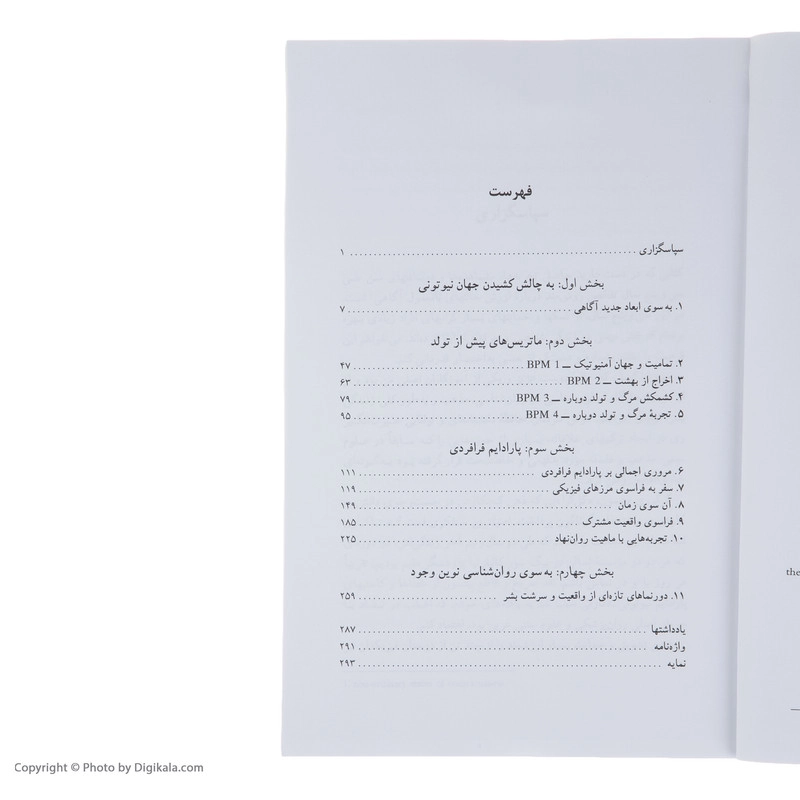 فهرست
سپاسگزاری ........ ۱
بخش اول: به چالش کشیدن جهان نیوتونی
۱. به سوی ابعاد جدید آگاهی ........ ۷
بخش دوم: ماتریس‌های پیش از تولد
۲. تمامیت و جهان آمنیوتیک ــ BPM 1 ........ ۴۷
۳. اخراج از بهشت ــ BPM 2 ........ ۶۳
۴. کشمکش مرگ و تولد دوباره ــ BPM 3 ........ ۷۹
۵. تجربهٔ مرگ و تولد دوباره ــ BPM 4 ........ ۹۵
بخش سوم: پارادایم فرافردی
۶. مروری اجمالی بر پارادایم فرافردی ........ ۱۱۱
۷. سفر به فراسوی مرزهای فیزیکی ........ ۱۱۹
۸. آن سوی زمان ........ ۱۴۹
۹. فراسوی واقعیت مشترک ........ ۱۸۵
۱۰. تجربه‌هایی با ماهیت روان‌نهاد ........ ۲۲۵
بخش چهارم: به سوی روان‌شناسی نوین وجود
۱۱. دورنماهای تازه‌ای از واقعیت و سرشت بشر ........ ۲۵۹
یادداشتها ........ ۲۸۷
واژه‌نامه ........ ۲۹۱
نمایه ........ ۲۹۳
the
Copyright © Photo by Digikala.com